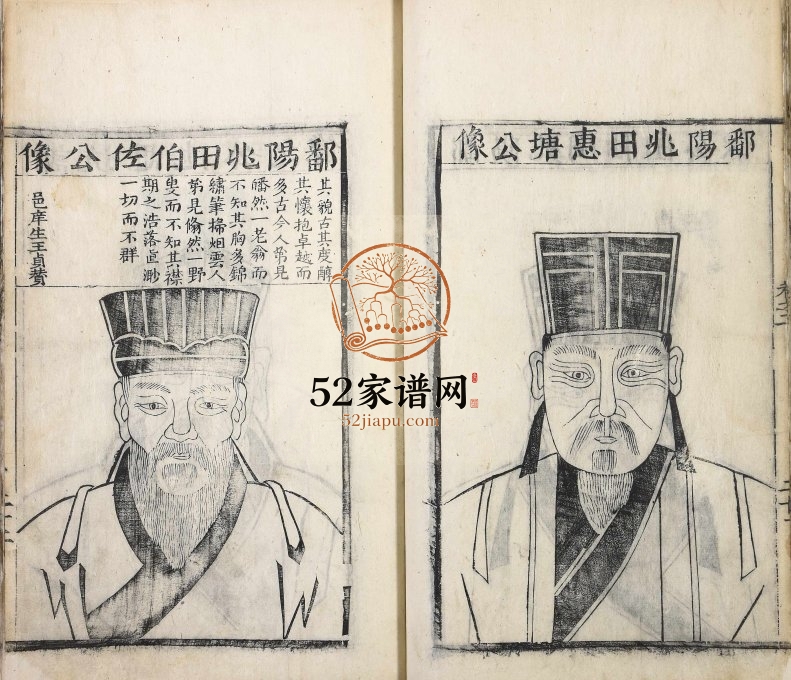 鄱陽兆田惠塘公像
鄱陽兆田伯佐公像
其貌古其度醇
其懷抱卓越而
多古今人第見
皤然一老翁而
不知其胸多錦
繡筆掃烟雲人
第見翛然一野
叟而不知其襟
期之浩落直渺
一切而不群
邑庠生王貞贊
52家谱网
52jiapu.com